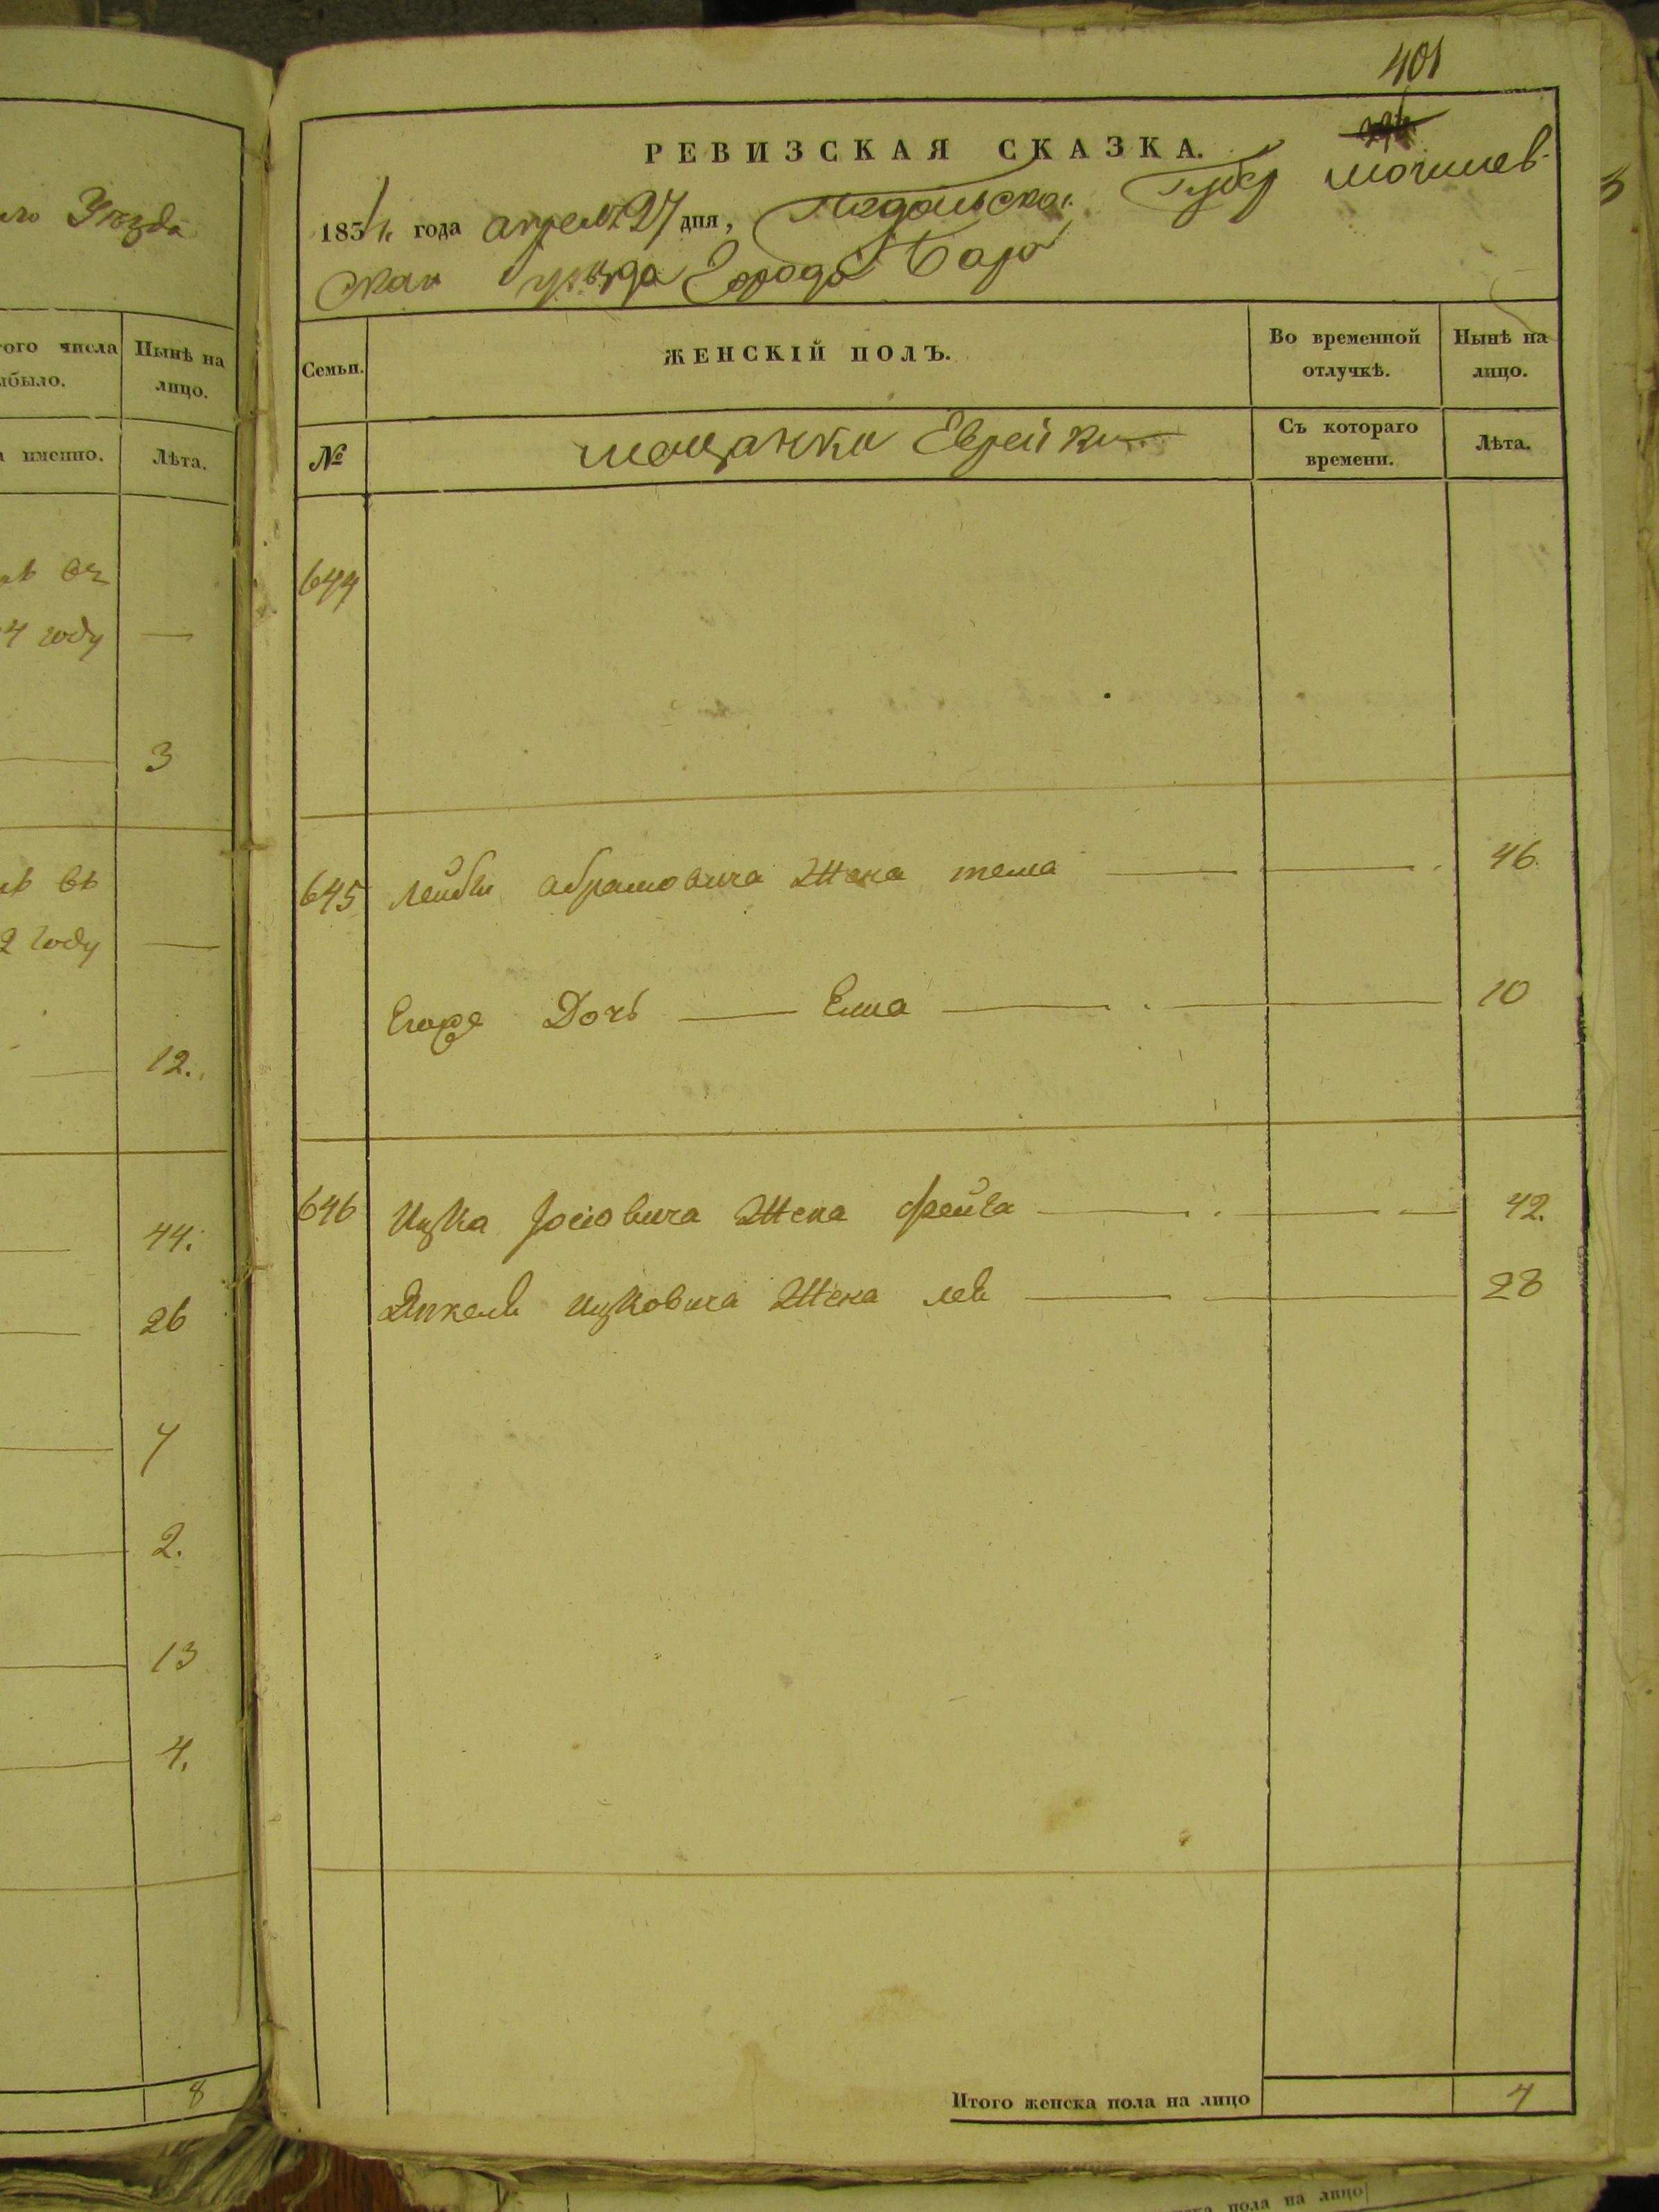 Уѣзда
того числа
Нынѣ на
лицо.
именно.
Лѣта.
4 году
—
3
въ
2 году
—
12.
44.
26
7
2.
13
4.
8
401
РЕВИЗСКАЯ СКАЗКА.
1834 года апреля 27 дня, Подольской Губер Могилев-
скаго уезда Города Бара
Семьи.
ЖЕНСКІЙ ПОЛЪ.
Во временной
отлучкѣ.
Нынѣ на
лицо.
№
мещанки Еврейки
Съ котораго
времени.
Лѣта.
644
645 Лейбы Абрамовича Жена тема — 46.
Егоже Дочь — Ента — 10
646 Ицка Іосіовича Жена фейга — 42.
Янкеля Ицковича Жена лея — 28
Итого женска пола на лицо
4
ска пола на лицо